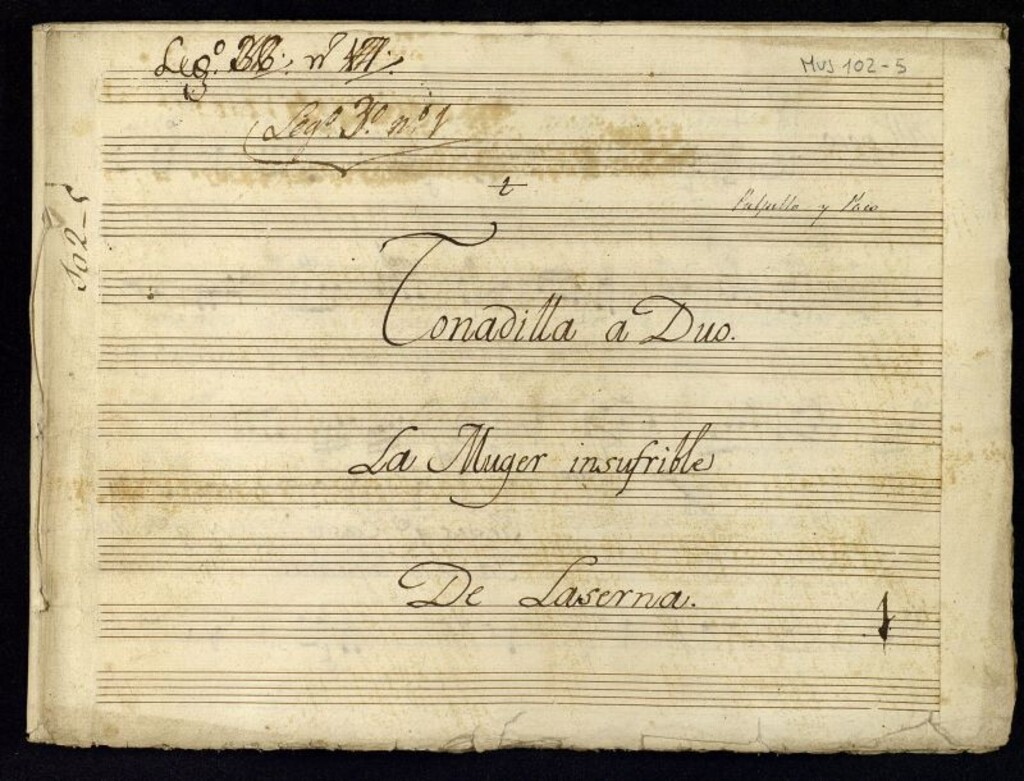 Leg.º nº
MUS 102-5
Legº 3.º nº 1
102-5
Pulpillo y Paco
Tonadilla a Duo.
La Muger insufrible
De Laserna.
1